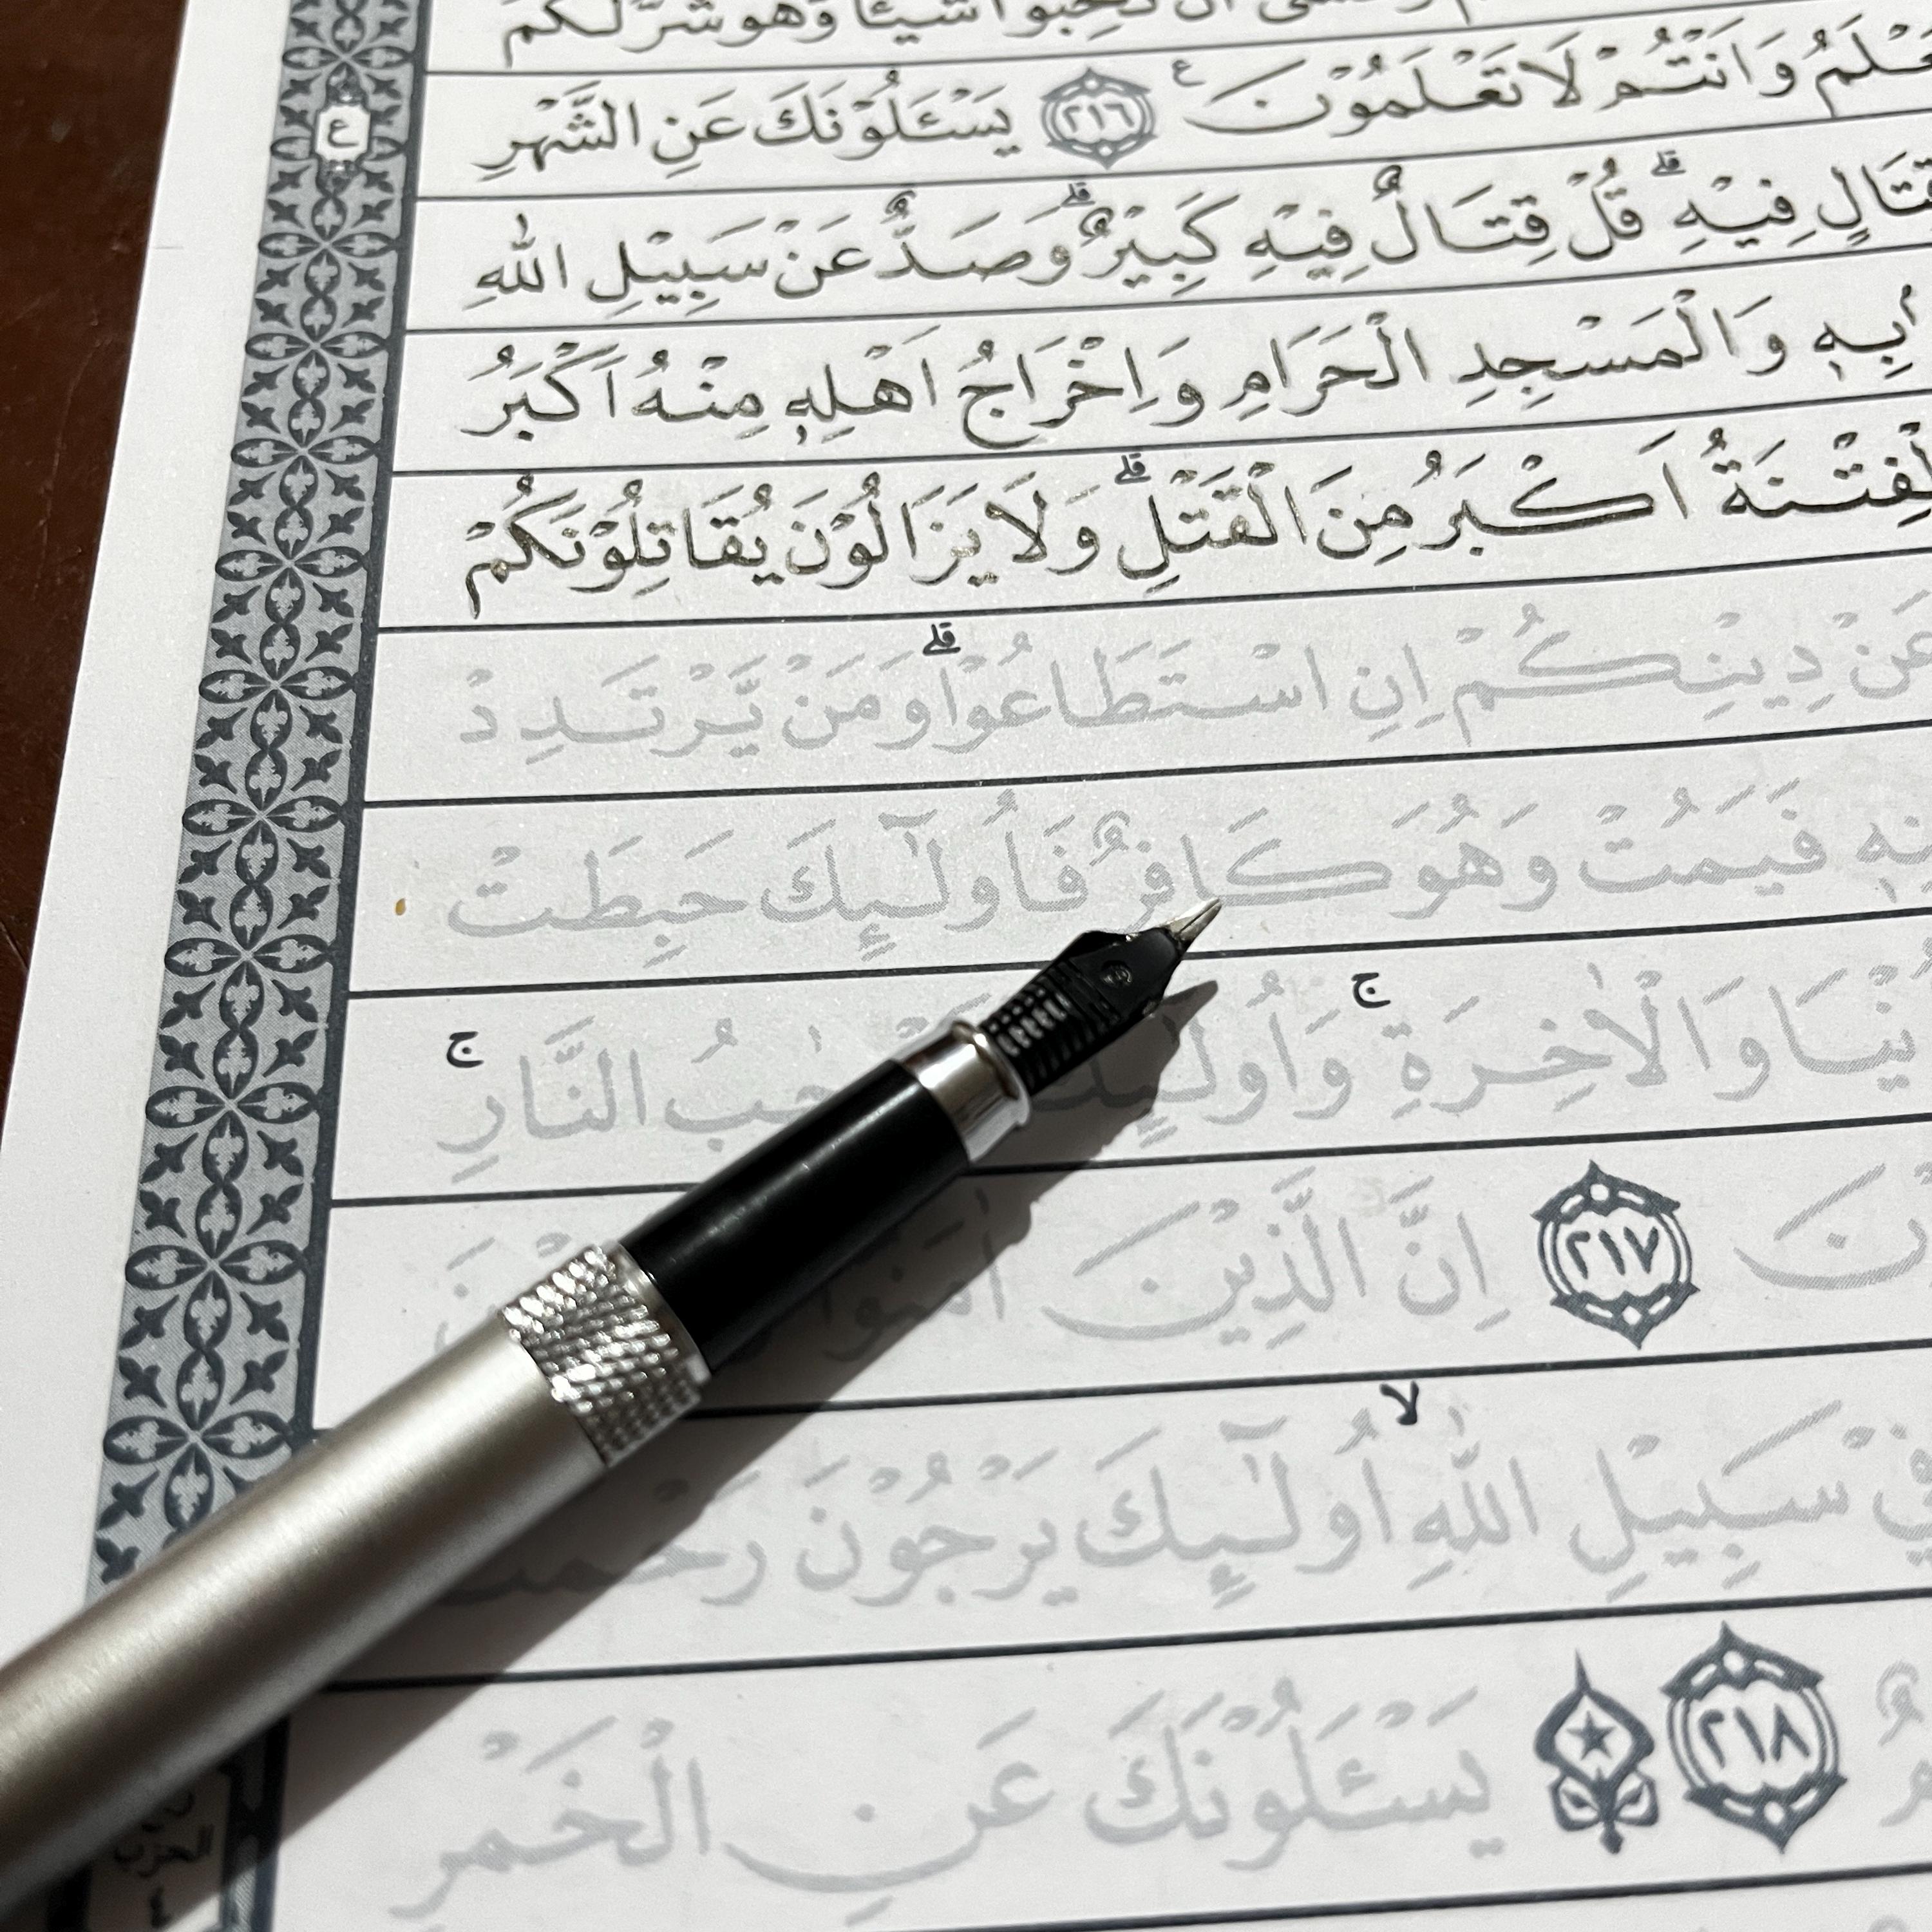 تُحِبُّوْا شَيْـًٔا وَّهُوَ شَرٌّ لَّكُمْ
وَاَنْتُمْ لَا تَعْلَمُوْنَ ࣖ ٢١٦ يَسْـَٔلُوْنَكَ عَنِ الشَّهْرِ
ع
فِيْهِۗ قُلْ قِتَالٌ فِيْهِ كَبِيْرٌۗ وَصَدٌّ عَنْ سَبِيْلِ اللّٰهِ
بِهٖ وَالْمَسْجِدِ الْحَرَامِ وَاِخْرَاجُ اَهْلِهٖ مِنْهُ اَكْبَرُ
اَكْبَرُ مِنَ الْقَتْلِۗ وَلَا يَزَالُوْنَ يُقَاتِلُوْنَكُمْ
عَنْ دِيْنِكُمْ اِنِ اسْتَطَاعُوْاۗ وَمَنْ يَّرْتَدِدْ
فَيَمُتْ وَهُوَ كَافِرٌ فَاُولٰۤىِٕكَ حَبِطَتْ
وَالْاٰخِرَةِۚ وَاُولٰۤىِٕكَ النَّارِۚ
٢١٧ اِنَّ الَّذِيْنَ اٰمَنُوْا
سَبِيْلِ اللّٰهِۙ اُولٰۤىِٕكَ يَرْجُوْنَ رَحْمَتَ
٢١٨ يَسْـَٔلُوْنَكَ عَنِ الْخَمْرِ
الحزب